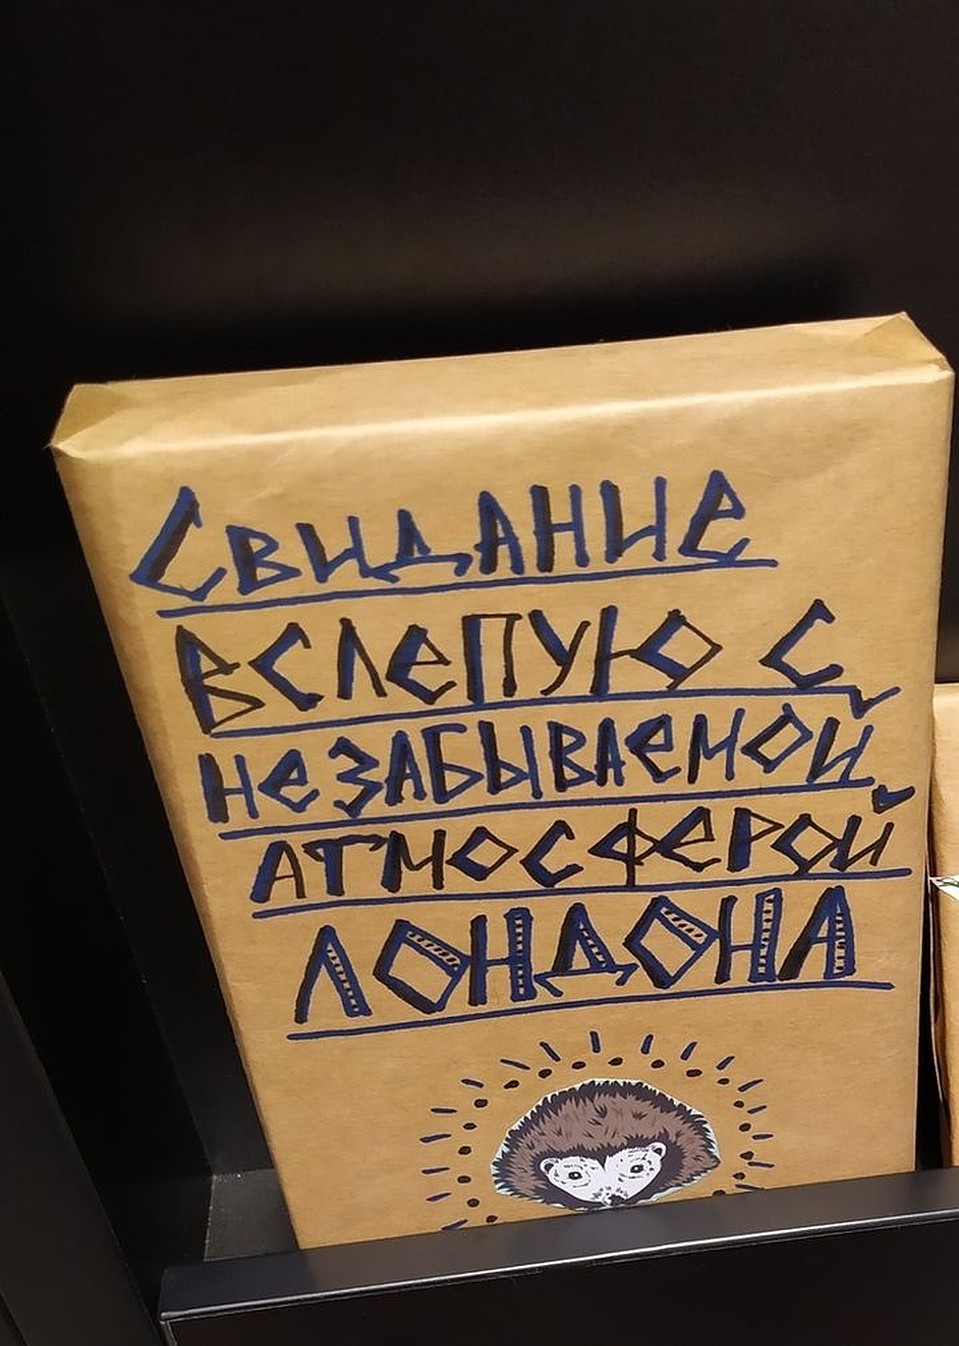 Свидание
вслепую с
незабываемой
атмосферой
Лондона